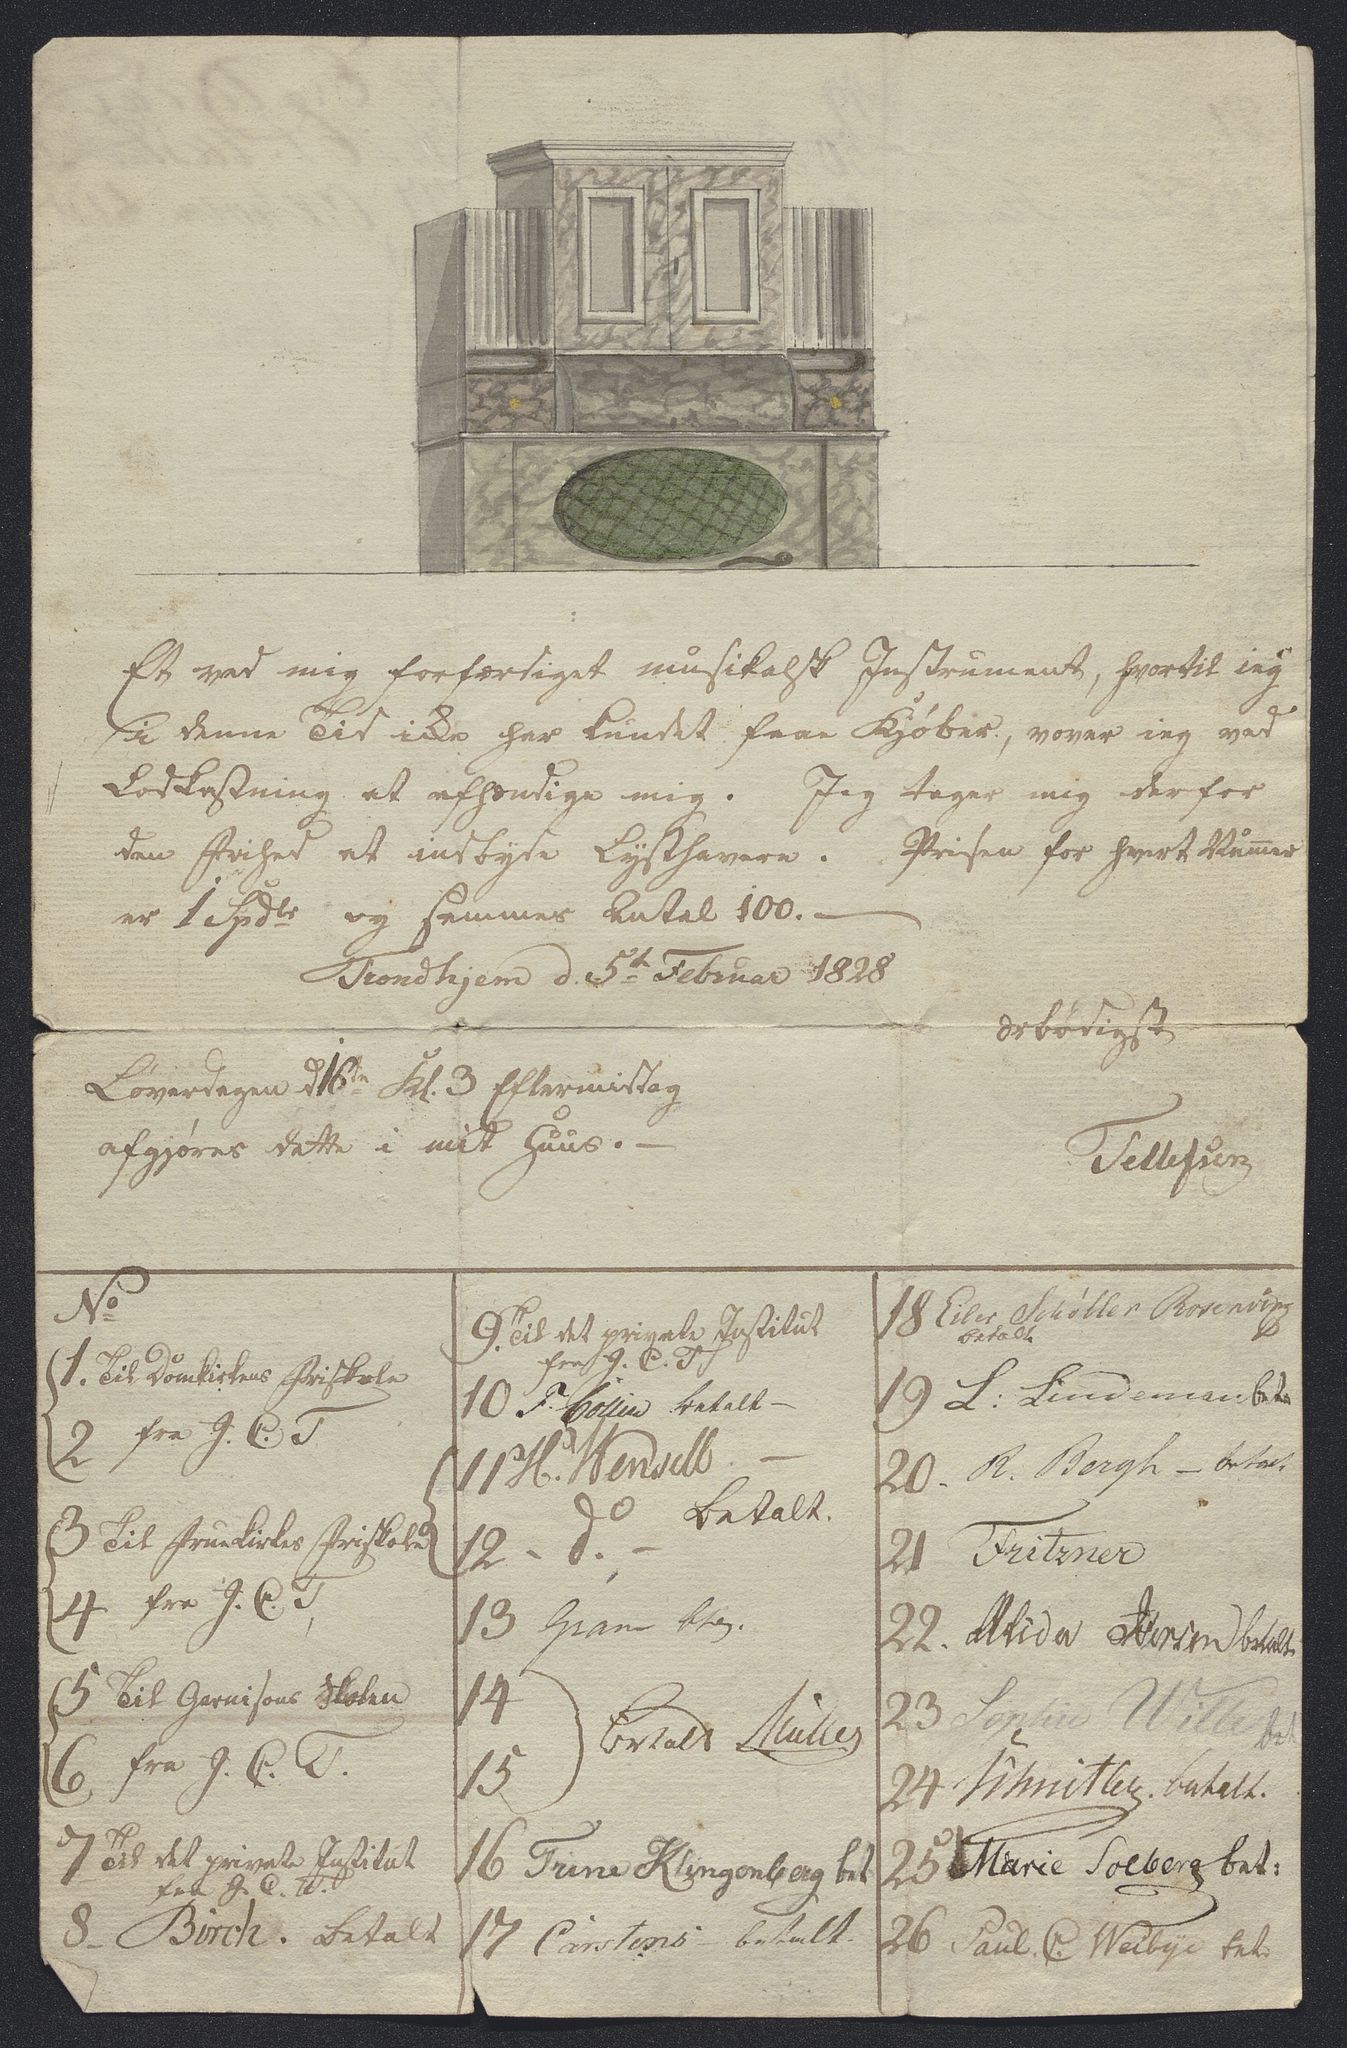 Et ved mig forfærdiget musikalsk Instrument, hvortil ieg
i denne Tid icke har kundet faae Kjøber, vover ieg ved
Lodkastning at afhændige mig. Jeg tager mig derfor
den Frihed at indbyde Lysthavere. Prisen for hvert Numer
er 1 Spdlr og sammes Antal 100.
Trondhjem d. 5te Februar 1828
ærbødigst
Tellefsen
Løverdagen d 16de Kl. 3 Eftermiddag
afgjøres dette i mit Huus. —
No
1. Til Domkirkens Friskole
2 fra J. C. T
3 Til Fruekirkes Friskole
4 fra J. C. T,
5 Til Garnisons Skolen
6 fra J. C. T.
7 Til det private Institut
fra J. C. T.
8 - Birch. betalt
9. Til det private Institut
fra J. C. T
10 F. Collin betalt —
11 H. Wensell —
do betalt.
12 - d. —
13 Gram
14
15 betalt Müller
16 Trine Klingenberg bet
17 Carstens betalt.
18 Eiler Schøller Rosenving
betalt
19 L: Lindeman bet
20. R. Bergh — betalt
21 Fritzner
22. Alida betalt
23 Sophie Wille
bet
24 Schnitler. betalt.
25 Marie Solberg bet:
26 Paul. C. Weibye bet